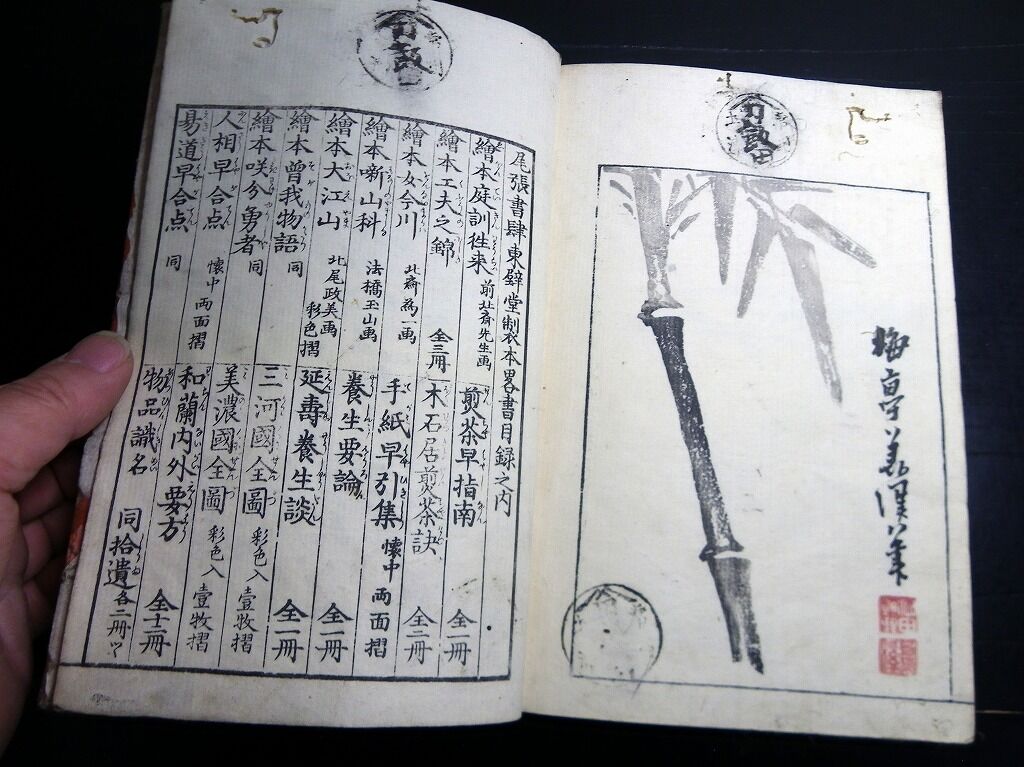 梅亭
尾張書肆東壁堂製本畧書目録之内
繪本庭訓徃来 前北斎先生画
繪本工夫之錦 全三冊
繪本女今川 北齋為一画
繪本噺山科 法橋玉山画
繪本大江山 北尾政美画 彩色摺
繪本曽我物語 同
繪本咲分勇者 同
人相早合点 懐中両面摺
易道早合点 同
煎茶早指南 全一冊
木石居煎茶訣 全二冊
手紙早引集 懐中両面摺
養生要論 全一冊
延壽養生談 全一冊
三河國全圖 彩色入 壹牧摺
美濃國全圖 彩色入 壹牧摺
和蘭内外要方 全十二冊
物品識名 同拾遺 各二冊